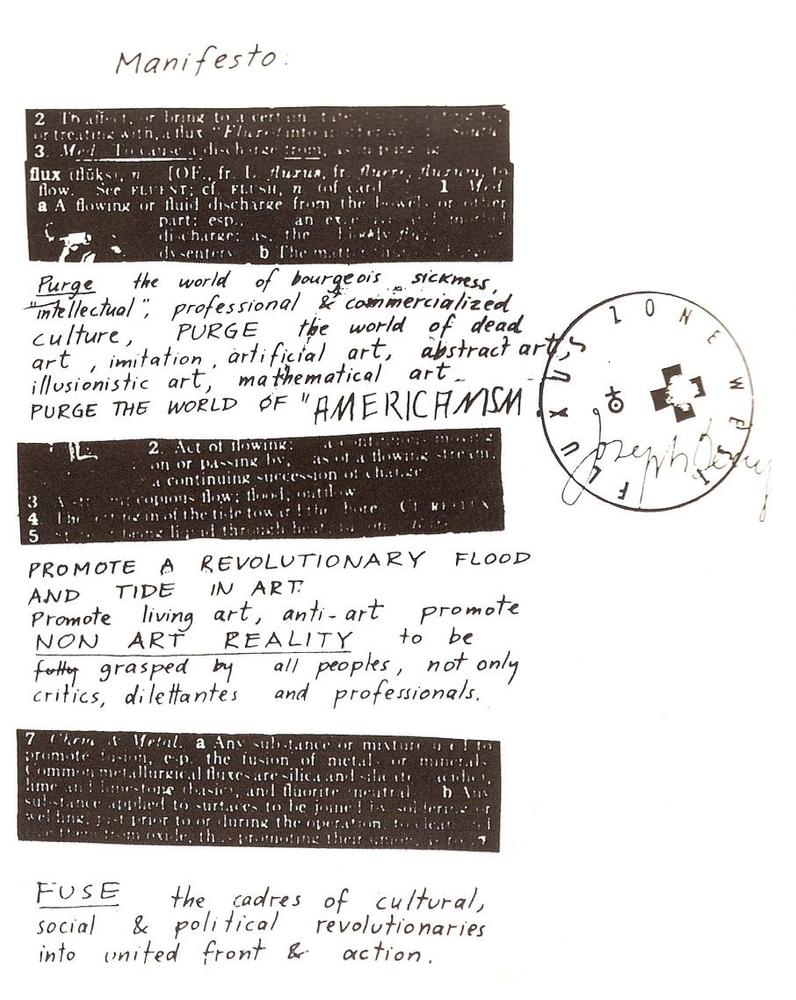 Manifesto:
2 To affect, or bring to a certain
or treating with, a flux
3. Med. To cause a discharge from, as in purging
flux (flŭks), n. [OF., fr. L. fluxus, fr. fluere, fluxum, to
flow. See FLUENT; cf. FLUSH, n. (of cards)] 1 Med.
a A flowing or fluid discharge from the bowels or other
part; esp., an excessive and morbid
discharge; as, the bloody flux
dysentery. b The matter
Purge the world of bourgeois sickness,
"intellectual", professional & commercialized
culture, PURGE the world of dead
art, imitation, artificial art, abstract art,
illusionistic art, mathematical art
PURGE THE WORLD OF "AMERICANISM"
FLUXUS ZONE WEST
Joseph Beuys
2. Act of flowing: a continuous moving
on or passing by, as of a flowing stream;
a continuing succession of changes
3 A stream; copious flow; flood; outflow
4 The setting in of the tide toward the shore. Cf. REFLUX
5
PROMOTE A REVOLUTIONARY FLOOD
AND TIDE IN ART.
Promote living art, anti-art promote
NON ART REALITY to be
fully grasped by all peoples, not only
critics, dilettantes and professionals.
7 Chem. & Metal. a Any substance or mixture used to
promote fusion, esp. the fusion of metals or minerals.
Common metallurgical fluxes are silica and silicates (acidic),
lime and limestone (basic), and fluorite (neutral). b Any
substance applied to surfaces to be joined by soldering or
welding, just prior to or during the operation, to clean and
free them from oxide, thus promoting their union, as rosin
FUSE the cadres of cultural,
social & political revolutionaries
into united front & action.